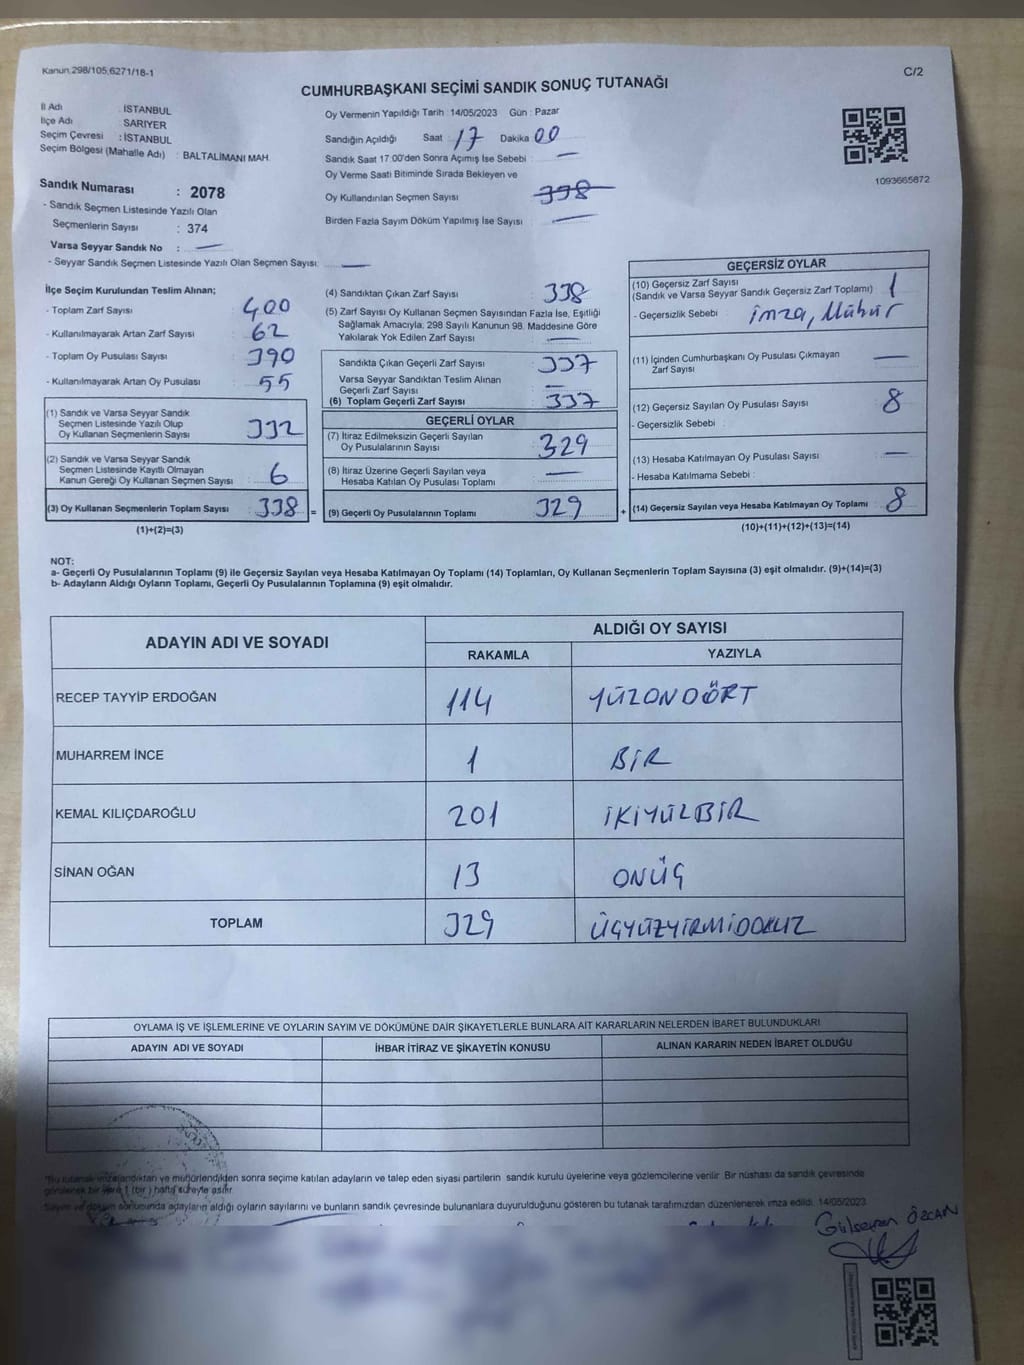 Kanun:298/105;6271/18-1
C/2
CUMHURBAŞKANI SEÇİMİ SANDIK SONUÇ TUTANAĞI
İl Adı : İSTANBUL
İlçe Adı : SARIYER
Seçim Çevresi : İSTANBUL
Seçim Bölgesi (Mahalle Adı) : BALTALİMANI MAH.
Sandık Numarası : 2078
- Sandık Seçmen Listesinde Yazılı Olan
Seçmenlerin Sayısı : 374
Varsa Seyyar Sandık No : —
- Seyyar Sandık Seçmen Listesinde Yazılı Olan Seçmen Sayısı: —
Oy Vermenin Yapıldığı Tarih : 14/05/2023 Gün : Pazar
Sandığın Açıldığı Saat : 17 Dakika : 00
Sandık Saat 17:00'den Sonra Açımış İse Sebebi : —
Oy Verme Saati Bitiminde Sırada Bekleyen ve
Oy Kullandırılan Seçmen Sayısı 338
Birden Fazla Sayım Döküm Yapılmış İse Sayısı —
1093665872
İlçe Seçim Kurulundan Teslim Alınan;
- Toplam Zarf Sayısı : 400
- Kullanılmayarak Artan Zarf Sayısı : 62
- Toplam Oy Pusulası Sayısı : 390
- Kullanılmayarak Artan Oy Pusulası : 55
(1) Sandık ve Varsa Seyyar Sandık
Seçmen Listesinde Yazılı Olup
Oy Kullanan Seçmenlerin Sayısı : 332
(2) Sandık ve Varsa Seyyar Sandık
Seçmen Listesinde Kayıtlı Olmayan
Kanun Gereği Oy Kullanan Seçmen Sayısı : 6
(3) Oy Kullanan Seçmenlerin Toplam Sayısı : 338
(1)+(2)=(3)
(4) Sandıktan Çıkan Zarf Sayısı : 338
(5) Zarf Sayısı Oy Kullanan Seçmen Sayısından Fazla İse, Eşitliği
Sağlamak Amacıyla, 298 Sayılı Kanunun 98. Maddesine Göre
Yakılarak Yok Edilen Zarf Sayısı : —
Sandıkta Çıkan Geçerli Zarf Sayısı : 337
Varsa Seyyar Sandıktan Teslim Alınan
Geçerli Zarf Sayısı : —
(6) Toplam Geçerli Zarf Sayısı : 337
GEÇERLİ OYLAR
(7) İtiraz Edilmeksizin Geçerli Sayılan
Oy Pusulalarının Sayısı : 329
(8) İtiraz Üzerine Geçerli Sayılan veya
Hesaba Katılan Oy Pusulası Toplamı : —
= (9) Geçerli Oy Pusulalarının Toplamı : 329
GEÇERSİZ OYLAR
(10) Geçersiz Zarf Sayısı
(Sandık ve Varsa Seyyar Sandık Geçersiz Zarf Toplamı) : 1
- Geçersizlik Sebebi : imza, Mühür
(11) İçinden Cumhurbaşkanı Oy Pusulası Çıkmayan
Zarf Sayısı : —
(12) Geçersiz Sayılan Oy Pusulası Sayısı : 8
- Geçersizlik Sebebi :
(13) Hesaba Katılmayan Oy Pusulası Sayısı : —
- Hesaba Katılmama Sebebi :
+ (14) Geçersiz Sayılan veya Hesaba Katılmayan Oy Toplamı : 8
(10)+(11)+(12)+(13)=(14)
NOT:
a- Geçerli Oy Pusulalarının Toplamı (9) ile Geçersiz Sayılan veya Hesaba Katılmayan Oy Toplamı (14) Toplamları, Oy Kullanan Seçmenlerin Toplam Sayısına (3) eşit olmalıdır. (9)+(14)=(3)
b- Adayların Aldığı Oyların Toplamı, Geçerli Oy Pusulalarının Toplamına (9) eşit olmalıdır.
ADAYIN ADI VE SOYADI
ALDIĞI OY SAYISI
RAKAMLA YAZIYLA
RECEP TAYYİP ERDOĞAN 114 YÜZONDÖRT
MUHARREM İNCE 1 BİR
KEMAL KILIÇDAROĞLU 201 İKİYÜZBİR
SİNAN OĞAN 13 ONÜÇ
TOPLAM 329 ÜÇYÜZYİRMİDOKUZ
OYLAMA İŞ VE İŞLEMLERİNE VE OYLARIN SAYIM VE DÖKÜMÜNE DAİR ŞİKAYETLERLE BUNLARA AİT KARARLARIN NELERDEN İBARET BULUNDUKLARI
ADAYIN ADI VE SOYADI İHBAR İTİRAZ VE ŞİKAYETİN KONUSU ALINAN KARARIN NEDEN İBARET OLDUĞU
"Bu tutanak imzalandıktan ve mühürlendikten sonra seçime katılan adayların ve talep eden siyasi partilerin sandık kurulu üyelerine veya gözlemcilerine verilir. Bir nüshası da sandık çevresinde
görülecek bir yere 1 (bir) hafta süreyle asılır.
Sayım ve döküm sonucunda adayların aldığı oyların sayılarını ve bunların sandık çevresinde bulunanlara duyurulduğunu gösteren bu tutanak tarafımızdan düzenlenerek imza edildi. 14/05/2023
Gülseren ÖZCAN